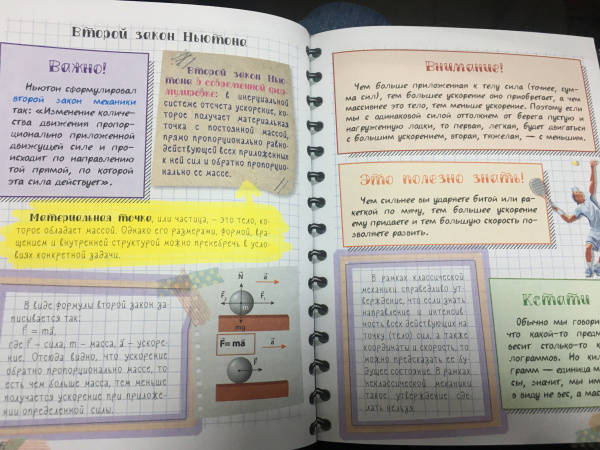 Второй закон Ньютона
Важно!
Ньютон сформулировал
второй закон механики
так: «Изменение количе-
ства движения пропор-
ционально приложенной
движущей силе и про-
исходит по направлению
той прямой, по которой
эта сила действует».
Второй закон Нью-
тона в современной фор-
мулировке: в инерциальной
системе отсчета ускорение, ко-
торое получает материальная
точка с постоянной массой,
прямо пропорционально равно-
действующей всех приложенных
к ней сил и обратно пропорцио-
нально ее массе.
Материальная точка, или частица, – это тело, ко-
торое обладает массой. Однако его размерами, формой, вра-
щением и внутренней структурой можно пренебречь в усло-
виях конкретной задачи.
В виде формулы второй закон за-
писывается так:
F⃗ = ma⃗,
где F⃗ – сила, m – масса, a⃗ – ускоре-
ние. Отсюда видно, что ускорение
обратно пропорционально массе, то
есть чем больше масса, тем меньше
получается ускорение при приложе-
нии определенной силы.
N⃗ a⃗
m
mg
F⃗=ma⃗ a⃗
Внимание!
Чем больше приложенная к телу сила (точнее, сум-
ма сил), тем большее ускорение оно приобретает, а чем
массивнее это тело, тем меньше ускорение. Поэтому если
мы с одинаковой силой оттолкнем от берега пустую и
нагруженную лодки, то первая, легкая, будет двигаться
с большим ускорением, вторая, тяжелая, — с меньшим.
Это полезно знать!
Чем сильнее вы ударяете битой или ра-
кеткой по мячу, тем большее ускорение
ему придаете и тем большую скорость по-
зволяете развить.
В рамках классической
механики справедливо ут-
верждение, что если знать
направление и интенсив-
ность всех действующих на
точку (тело) сил, а также
координаты и скорость, то
можно предсказать ее бу-
дущее состояние. В рамках
неклассической механики
такое утверждение сде-
лать нельзя.
Кстати
Обычно мы говори
что какой-то пред
весит столько-то к
лограммов. Но кил
грамм – единица м
сы, значит, мы им
в виду не вес, а мас